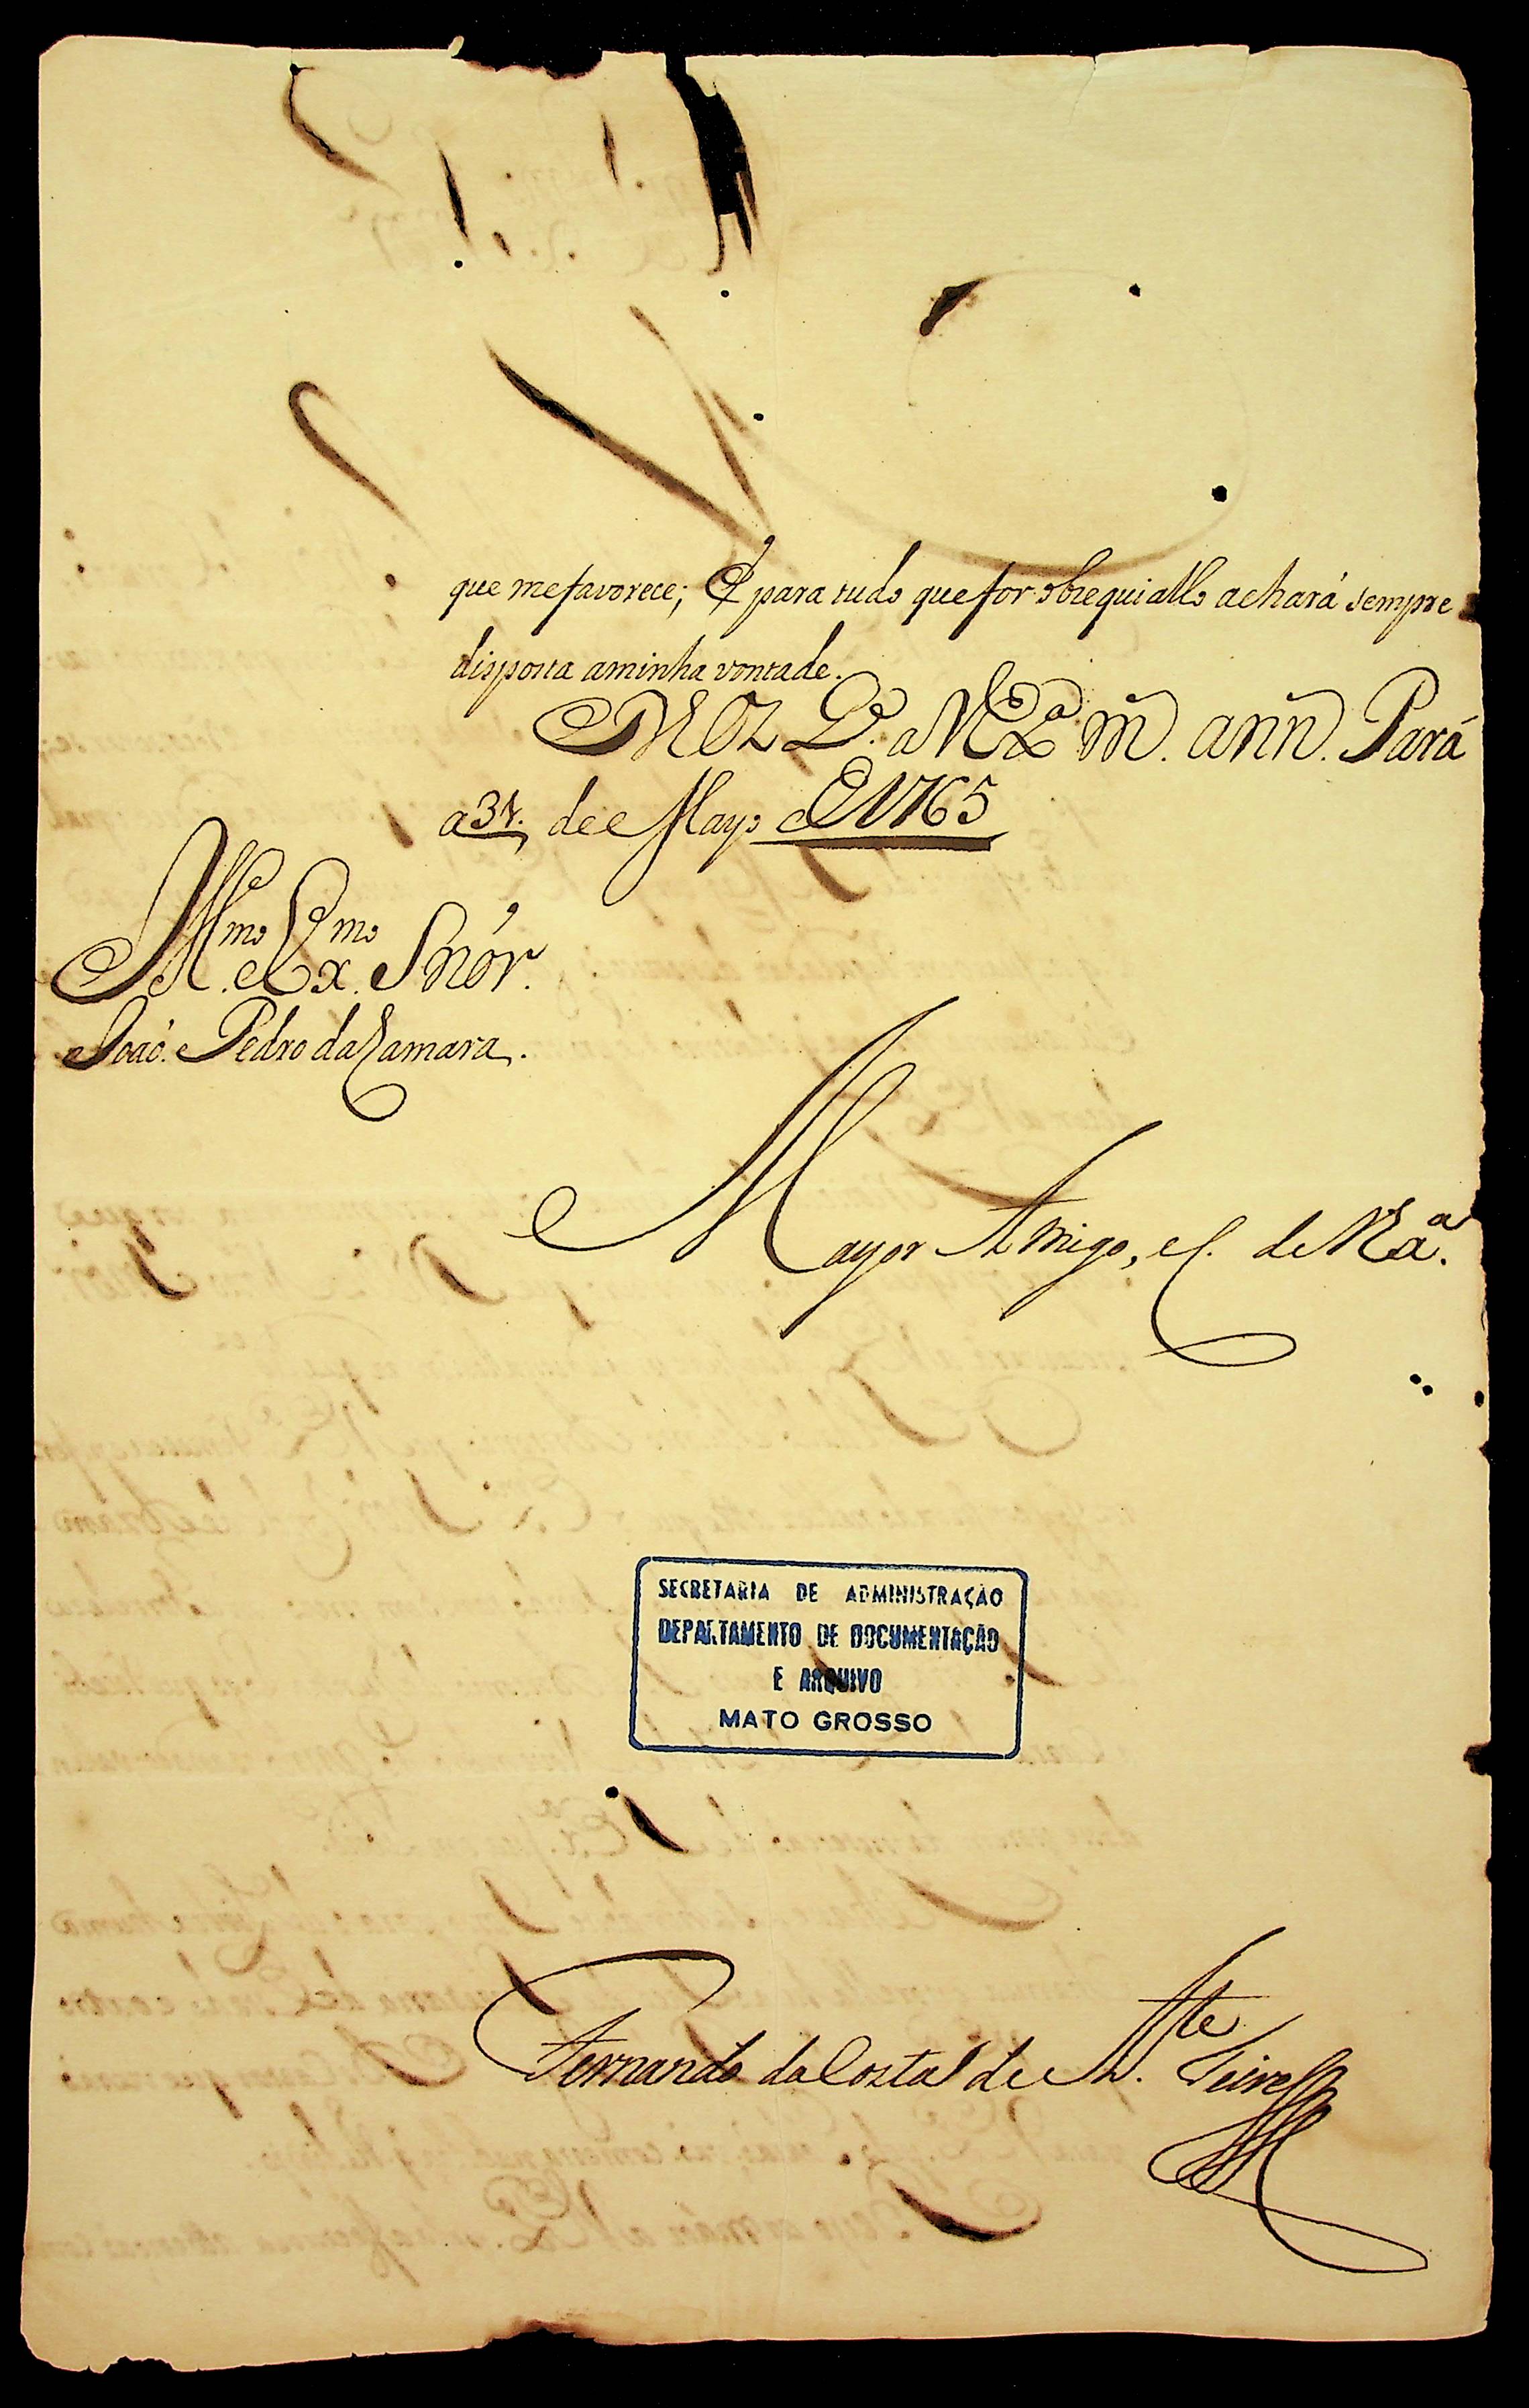 que mefavorece; E para tudo que for obzequiallo achará sempre
disposta aminha vontade.
D.s G.e a V Ex.a m. ann. Pará
a 31. de Mayo de 1765
Ill.mo e Ex.mo Snór.
Joaó Pedro da Camara.
Mayor Amigo, e C. de V Ex.a
SECRETARIA DE ADMINISTRAÇÃO
DEPARTAMENTO DE DOCUMENTAÇÃO
E ARQUIVO
MATO GROSSO
Fernando da Costa de At.te Teive